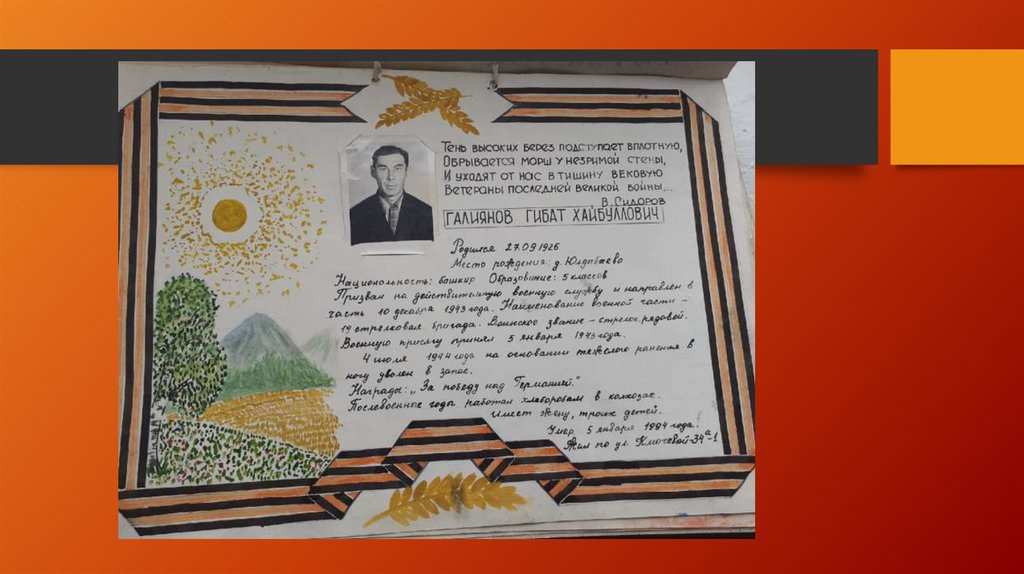 Тень высоких берез подступает вплотную,
Обрывается марш у незримой стены,
И уходят от нас в тишину вековую
Ветераны последней великой войны...
В. Сидоров
ГАЛИЯНОВ ГИБАТ ХАЙБУЛЛОВИЧ
Родился 27.09.1926
Место рождения: д. Юлдабаево
Национальность: башкир Образование: 5 классов
Призван на действительную военную службу и направлен в
часть 10 декабря 1943 года. Наименование военной части -
19 стрелковая бригада. Воинское звание - стрелок, рядовой.
Военную присягу принял 5 января 1943 года.
4 июля 1944 года на основании тяжелого ранения в
ногу уволен в запас.
Награды: „За победу над Германией."
Послевоенные годы работал хлеборобом в колхозах.
Имеет жену, троих детей.
Умер 5 января 1994 года.
Жил по ул. Ключевой-34а-1